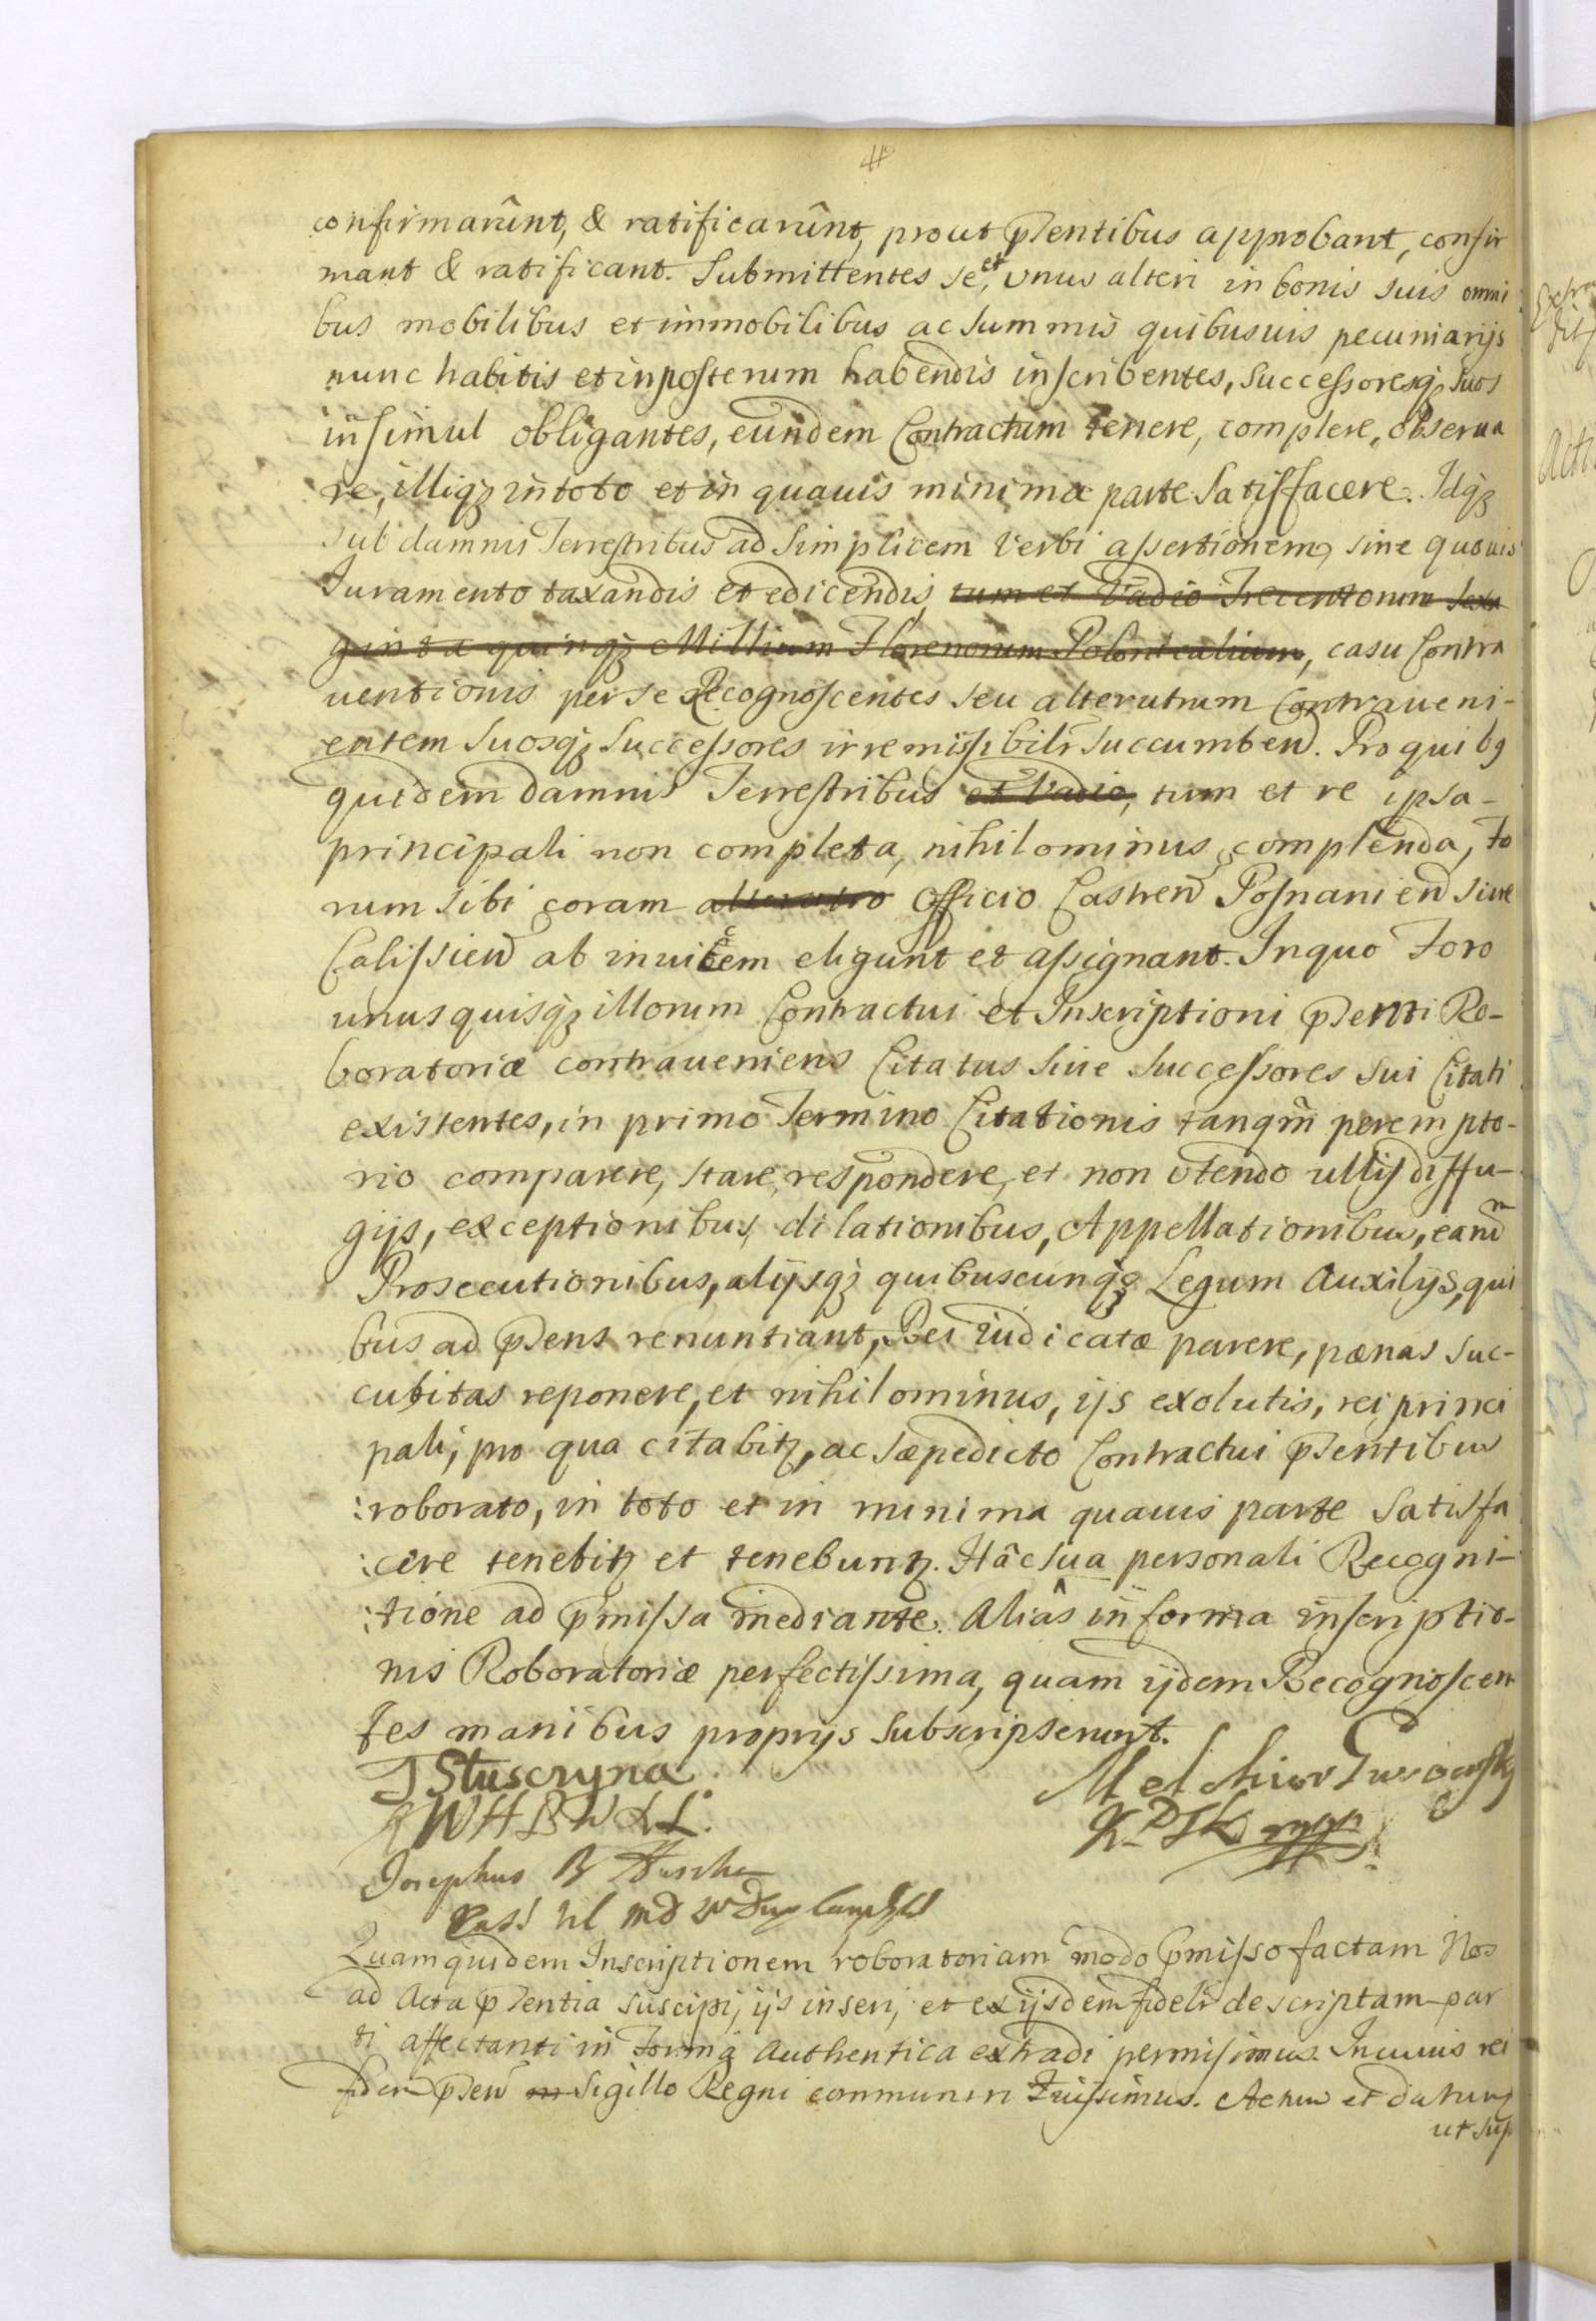 confirmarûnt, & ratificarûnt, prout p̃sentibus approbant, confir
mant & ratificant. Submittentes se et unus alteri in bonis suis omni
bus mobilibus et immobilibus ac summis quibusuis pecuniarijs
nunc habitis et inposterum habendis inscribentes, Successoresq́ʒ suos
insimul obligantes, eundem Contractum tenere, complere, obserua
re, illiq́ʒ in toto et in quauis minima parte Satisfacere. Idq́ʒ
sub damnis Terrestribus ad Simplicem Verbi assertionem, sine quouis
Juramento taxandis et edicendis, tum et Vadio Trecentorum Sexa
ginta quinq́ʒ Millium Florenorum Polonicalium, casu Contra
uentionis per se Recognoscentes seu alterutrum Contraueni-
entem Suosq́ʒ Successores irremissibilr̃ succumbeñ. Pro quibꝰ
quidem damnis Terrestribus et Vadio, tum et re ipsa-
principali non completa, nihilominus complenda, Fo
rum sibi coram alterutro Officio Castreñ Posnanieñ siue
Calissieñ ab inuicem eligunt et assignant. In quo Foro
unusquisq́ʒ illorum Contractui et Inscriptioni p̃senti Ro-
boratoriæ contraueniens Citatus siue Successores Sui Citati
existentes, in primo Termino Citationis tanqm̃ perempto-
rio comparere, stare, respondere, et non utendo ullis diffu-
gijs, exceptionibus, dilationibus, Appellationibus, eañdm
Prosecutionibus, alijsq́ʒ quibuscunq́ʒ Legum Auxilijs, qui
bus ad p̃sens renuntiant, Rei iudicatæ parere, pænas suc-
cubitas reponere, et nihilominus, ijs exolutis, rei princi
pali, pro qua citabitʒ, ac sæpedicto Contractui p̃sentibus
roborato, in toto et in minima quauis parte Satisfa
cere tenebitʒ et tenebuntʒ. Hâc sua personali Recogni-
tione ad p̃missa mediante. Aliâs in forma inscriptio-
nis Roboratoriæ perfectissima, quam ijdem Recognoscen
tes manibus proprijs Subscripserunt.
Melchior Gurowsky
Josephus
Quamquidem Inscriptionem roboratoriam modo p̃misso factam Nos
ad Acta p̃sentia suscipi, ijs inseri, et ex ijsdem fidelr̃ descriptam par
ti affectanti in Forma Authentica extradi permisimus. In cuius rei
fidem p̃señ Sigillo Regni communiri Iussimus. Actum et datum
ut sup